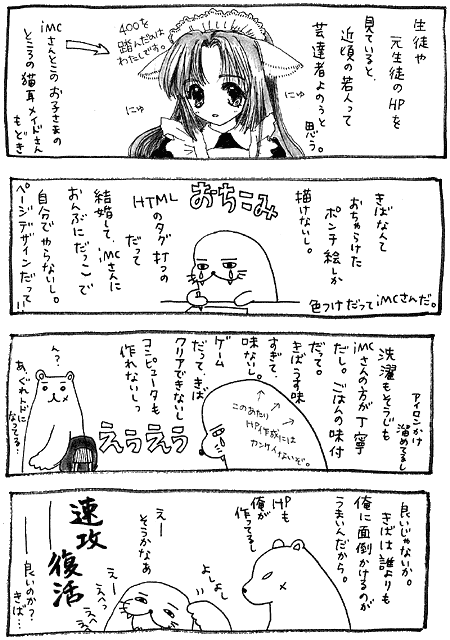 生徒や
元生徒のHPを
見ていると、
近頃の若人って
芸達者よのうと
思う。
400を
踏んだのは
わたしです。
にゅ
にゅ
iMCさんとこのお子さまの
ところの猫耳メイドさん
もどき
きばなんて
おちゃらけた
ポンチ絵しか
描けないし。
色つけだってiMCさんだ。
おちこみ
HTML
のタグ打つの
だって
結婚して、iMCさんに
おんぶにだっこで
自分でやらないし。
ページデザインだって!!
アイロンかけ
溜めてるし
洗濯もそうじも
iMCさんの方が丁寧
だし。ごはんの味付
だって。
きばうす味
すぎて、
味ないし。
ゲーム
だって、きば
クリアできないし
コンピュータも
作れないしっ
このあたり
HP作成には
カンケイないぞ。
えうえう
ん?
あ、ぐれんドに
なってる…
良いじゃないか。
きばは誰よりも
俺に面倒かけるのが
うまいんだから。
HPも
俺が
作ってるし
よしよし
えー
そうかなあ
えー
えへっ
えへへ
速攻
復活
――良いのか?
きば…